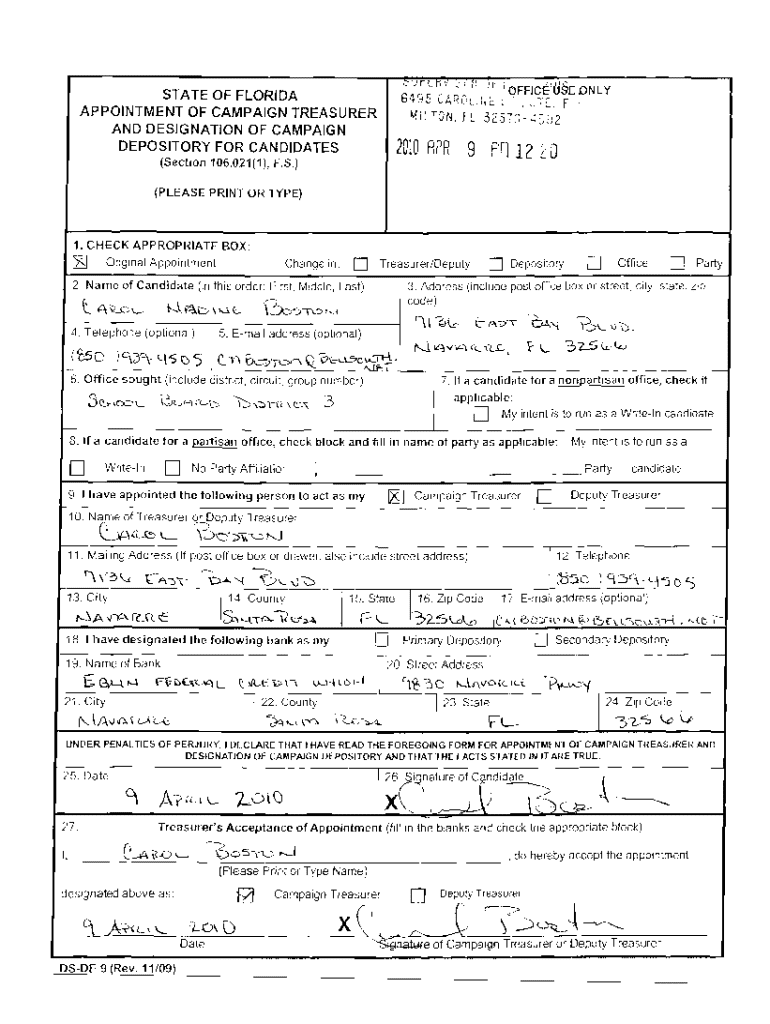 STATE OF FLORIDA
APPOINTMENT OF CAMPAIGN TREASURER
AND DESIGNATION OF CAMPAIGN
DEPOSITORY FOR CANDIDATES
(Section 106.021(1), F.S.)
(PLEASE PRINT OR TYPE)
OFFICE USE ONLY
6495 CAROLINE
MILTON, FL 32570-4592
2010 APR 9 PM 12 20
1. CHECK APPROPRIATE BOX:
Original Appointment Change in: Treasurer/Deputy Depository Office Party
2. Name of Candidate (in this order: First, Middle, Last)
CAROL NADINE BOSTON
3. Address (include post office box or street, city, state, zip
code)
7136 EAST BAY BLVD.
NAVARRE, FL 32566
4. Telephone (optional) 5. E-mail address (optional)
(850 )939-4505 CNBOSTON@BELLSOUTH.
NET
6. Office sought (include district, circuit, group number)
SCHOOL BOARD DISTRICT 3
7. If a candidate for a nonpartisan office, check if
applicable:
My intent is to run as a Write-In candidate
8. If a candidate for a partisan office, check block and fill in name of party as applicable: My intent is to run as a
Write-In No Party Affiliation Party candidate
9. I have appointed the following person to act as my X Campaign Treasurer Deputy Treasurer
10. Name of Treasurer or Deputy Treasurer
CAROL BOSTON
11. Mailing Address (If post office box or drawer, also include street address) 12. Telephone
7136 EAST BAY BLVD (850 )939-4505
13. City 14. County 15. State 16. Zip Code 17. E-mail address (optional)
NAVARRE SANTA ROSA FL 32566 CNBOSTON@BELLSOUTH.NET
18. I have designated the following bank as my Primary Depository Secondary Depository
19. Name of Bank 20. Street Address
EGLIN FEDERAL CREDIT UNION 9830 NAVARRE PKWY
21. City 22. County 23. State 24. Zip Code
NAVARRE SANTA ROSA FL. 32566
UNDER PENALTIES OF PERJURY, I DECLARE THAT I HAVE READ THE FOREGOING FORM FOR APPOINTMENT OF CAMPAIGN TREASURER AND
DESIGNATION OF CAMPAIGN DEPOSITORY AND THAT THE FACTS STATED IN IT ARE TRUE.
25. Date 26. Signature of Candidate
9 APRIL 2010 X Carol Boston
27. Treasurer's Acceptance of Appointment (fill in the blanks and check the appropriate block)
I, CAROL BOSTON , do hereby accept the appointment
(Please Print or Type Name)
designated above as: Campaign Treasurer Deputy Treasurer
9 APRIL 2010 X Carol Boston
Date Signature of Campaign Treasurer or Deputy Treasurer
DS-DE 9 (Rev. 11/09)